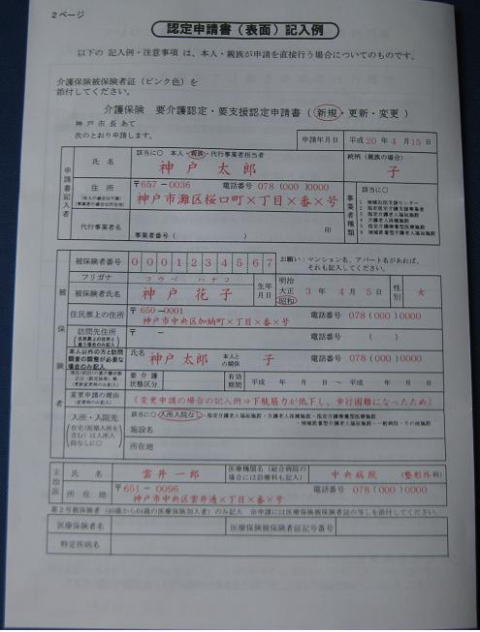 2ページ
認定申請書(表面)記入例
以下の 記入例・注意事項 は、本人・親族が申請を直接行う場合についてのものです。
介護保険被保険者証(ピンク色)を
添付してください。
介護保険 要介護認定・要支援認定申請書(新規・更新・変更)
神戸市長あて
次のとおり申請します。
申請年月日 平成20年4月15日
申請書記入者
氏名
該当に○ 本人・親族・代行事業者担当者
神戸 太郎
続柄(親族の場合)
子
住所
〒657-0036 電話番号 078(000)0000
神戸市灘区桜口町×丁目×番×号
代行事業者名
事業者番号( ) 印
事業者種類
該当に○
被保険者
被保険者番号 0001234567
お願い:マンション名、アパート名があれば、
それも記入してください。
フリガナ コウベ ハナコ
被保険者氏名 神戸 花子
生年月日 明治 大正 昭和 3年4月5日 性別 女
住民票上の住所
〒650-0001 電話番号 078(000)0000
神戸市中央区加納町×丁目×番×号
訪問先住所
〒 - 電話番号 ( )
本人以外の方と訪問調査の調整が必要な場合のみ記入
氏名 神戸 太郎 本人との関係 子 電話番号 078(000)0000
要介護状態区分
有効期間 平成 年 月 日~平成 年 月 日
変更申請の理由
(変更申請の場合の記入例⇒下肢筋力が低下し、歩行困難になったため)
入所・入院先
該当に○ 入所入院なし
施設名
所在地
主治医
氏名 雲井 一郎
医療機関名(総合病院の場合には診療科も記入) 中央病院(整形外科)
所在地
〒651-0096 電話番号 078(000)0000
神戸市中央区雲井通×丁目×番×号
第2号被保険者(40歳から64歳の医療保険加入者)のみ記入
医療保険者名 医療保険被保険者証記号番号
特定疾病名